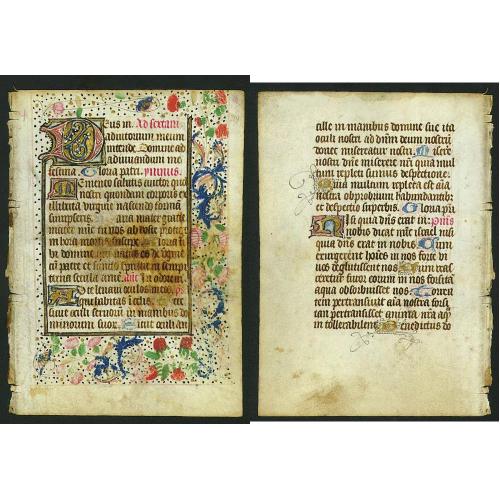 Deus in. Ad sextam
adiutorium meum
intende. Domine ad
adiuuandum me
festina. Gloria patri. ympnus.
Memento salutis auctor quod
nostri quondam corporis ex
illibata virgine nascendo formā
sumpseris. Maria mater gratie
mater mie tu nos ab hoste protege et
in hora mortis suscipe. Gloria ti
bi domine qui natus es de virgine
cū patre et sancto spiritu in sempi
terna secula amē. In odorem
Ad te leuaui oculos meos
qui habitas i celis. Ecce
sicut oculi seruorū in manibus do
minorum suor. Sicut oculi an
cille in manibus domine sue ita
oculi nostri ad dnm deum nostrū
donec misereatur nostri. Misere
nostri dne miserere nri quia mul
tum repleti sumus despectione.
Quia multum repleta est aīa
nostra obprobrium habundantibz
et despectio superbis. Gloria pri
Nisi quia dns erat in
nobis dicat nūc israel nisi
quia dns erat in nobis. Cum
exurgerent hoīes in nos forte vi
uos deglutissent nos. Cum iras
ceretur furor eorum in nos forsitā
aqua obsorbuisset nos. Torren
tem pertransiuit aīa nostra forsi
tan pertransisset anima nrā aq̄m
in tollerabilem. Benedictus do